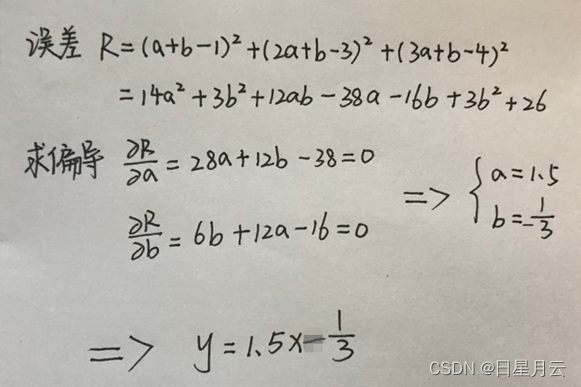 误差 R=(a+b-1)²+(2a+b-3)²+(3a+b-4)²
=14a²+3b²+12ab-38a-16b+3b²+26
求偏导 ∂R/∂a=28a+12b-38=0
∂R/∂b=6b+12a-16=0
=> { a=1.5
b=-1/3
=> y=1.5x-1/3
CSDN @日星月云